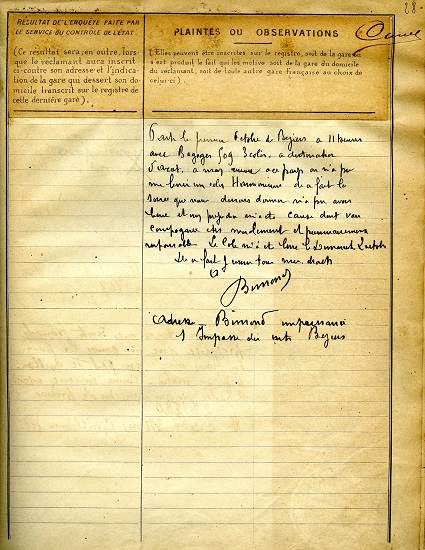 28
RÉSULTAT DE L'ENQUÊTE FAITE PAR
LE SERVICE DU CONTRÔLE DE L'ÉTAT
(Ce résultat sera, en outre, lors-
que le réclamant aura inscrit
ci-contre son adresse et l'indica-
tion de la gare qui dessert son do-
micile transcrit sur le registre de
cette dernière gare).
PLAINTES OU OBSERVATIONS
(Elles peuvent être inscrites sur le registre, soit de la gare où
s'est produit le fait qui les motive, soit de la gare du domicile
du réclamant, soit de toute autre gare française au choix de
celui-ci)
Parti le premier Octobre de Beziers a 11 heures
avec Bagages 509 3 colis a destination
a mon arrivée a ce pays on n'a pu
me livrer un colis Harmonium de a fait la
soirée que nous devions donner n'a pu avoir
lieue et mes cause dont votre
compagnie est moralement et pécuniairement
responsable. Le Colis n'a été livré le Dimanche 2 octobre
De ce fait je reserve tous mes droits
Bimond
Adresse Bimond
1 Impasse des Beziers